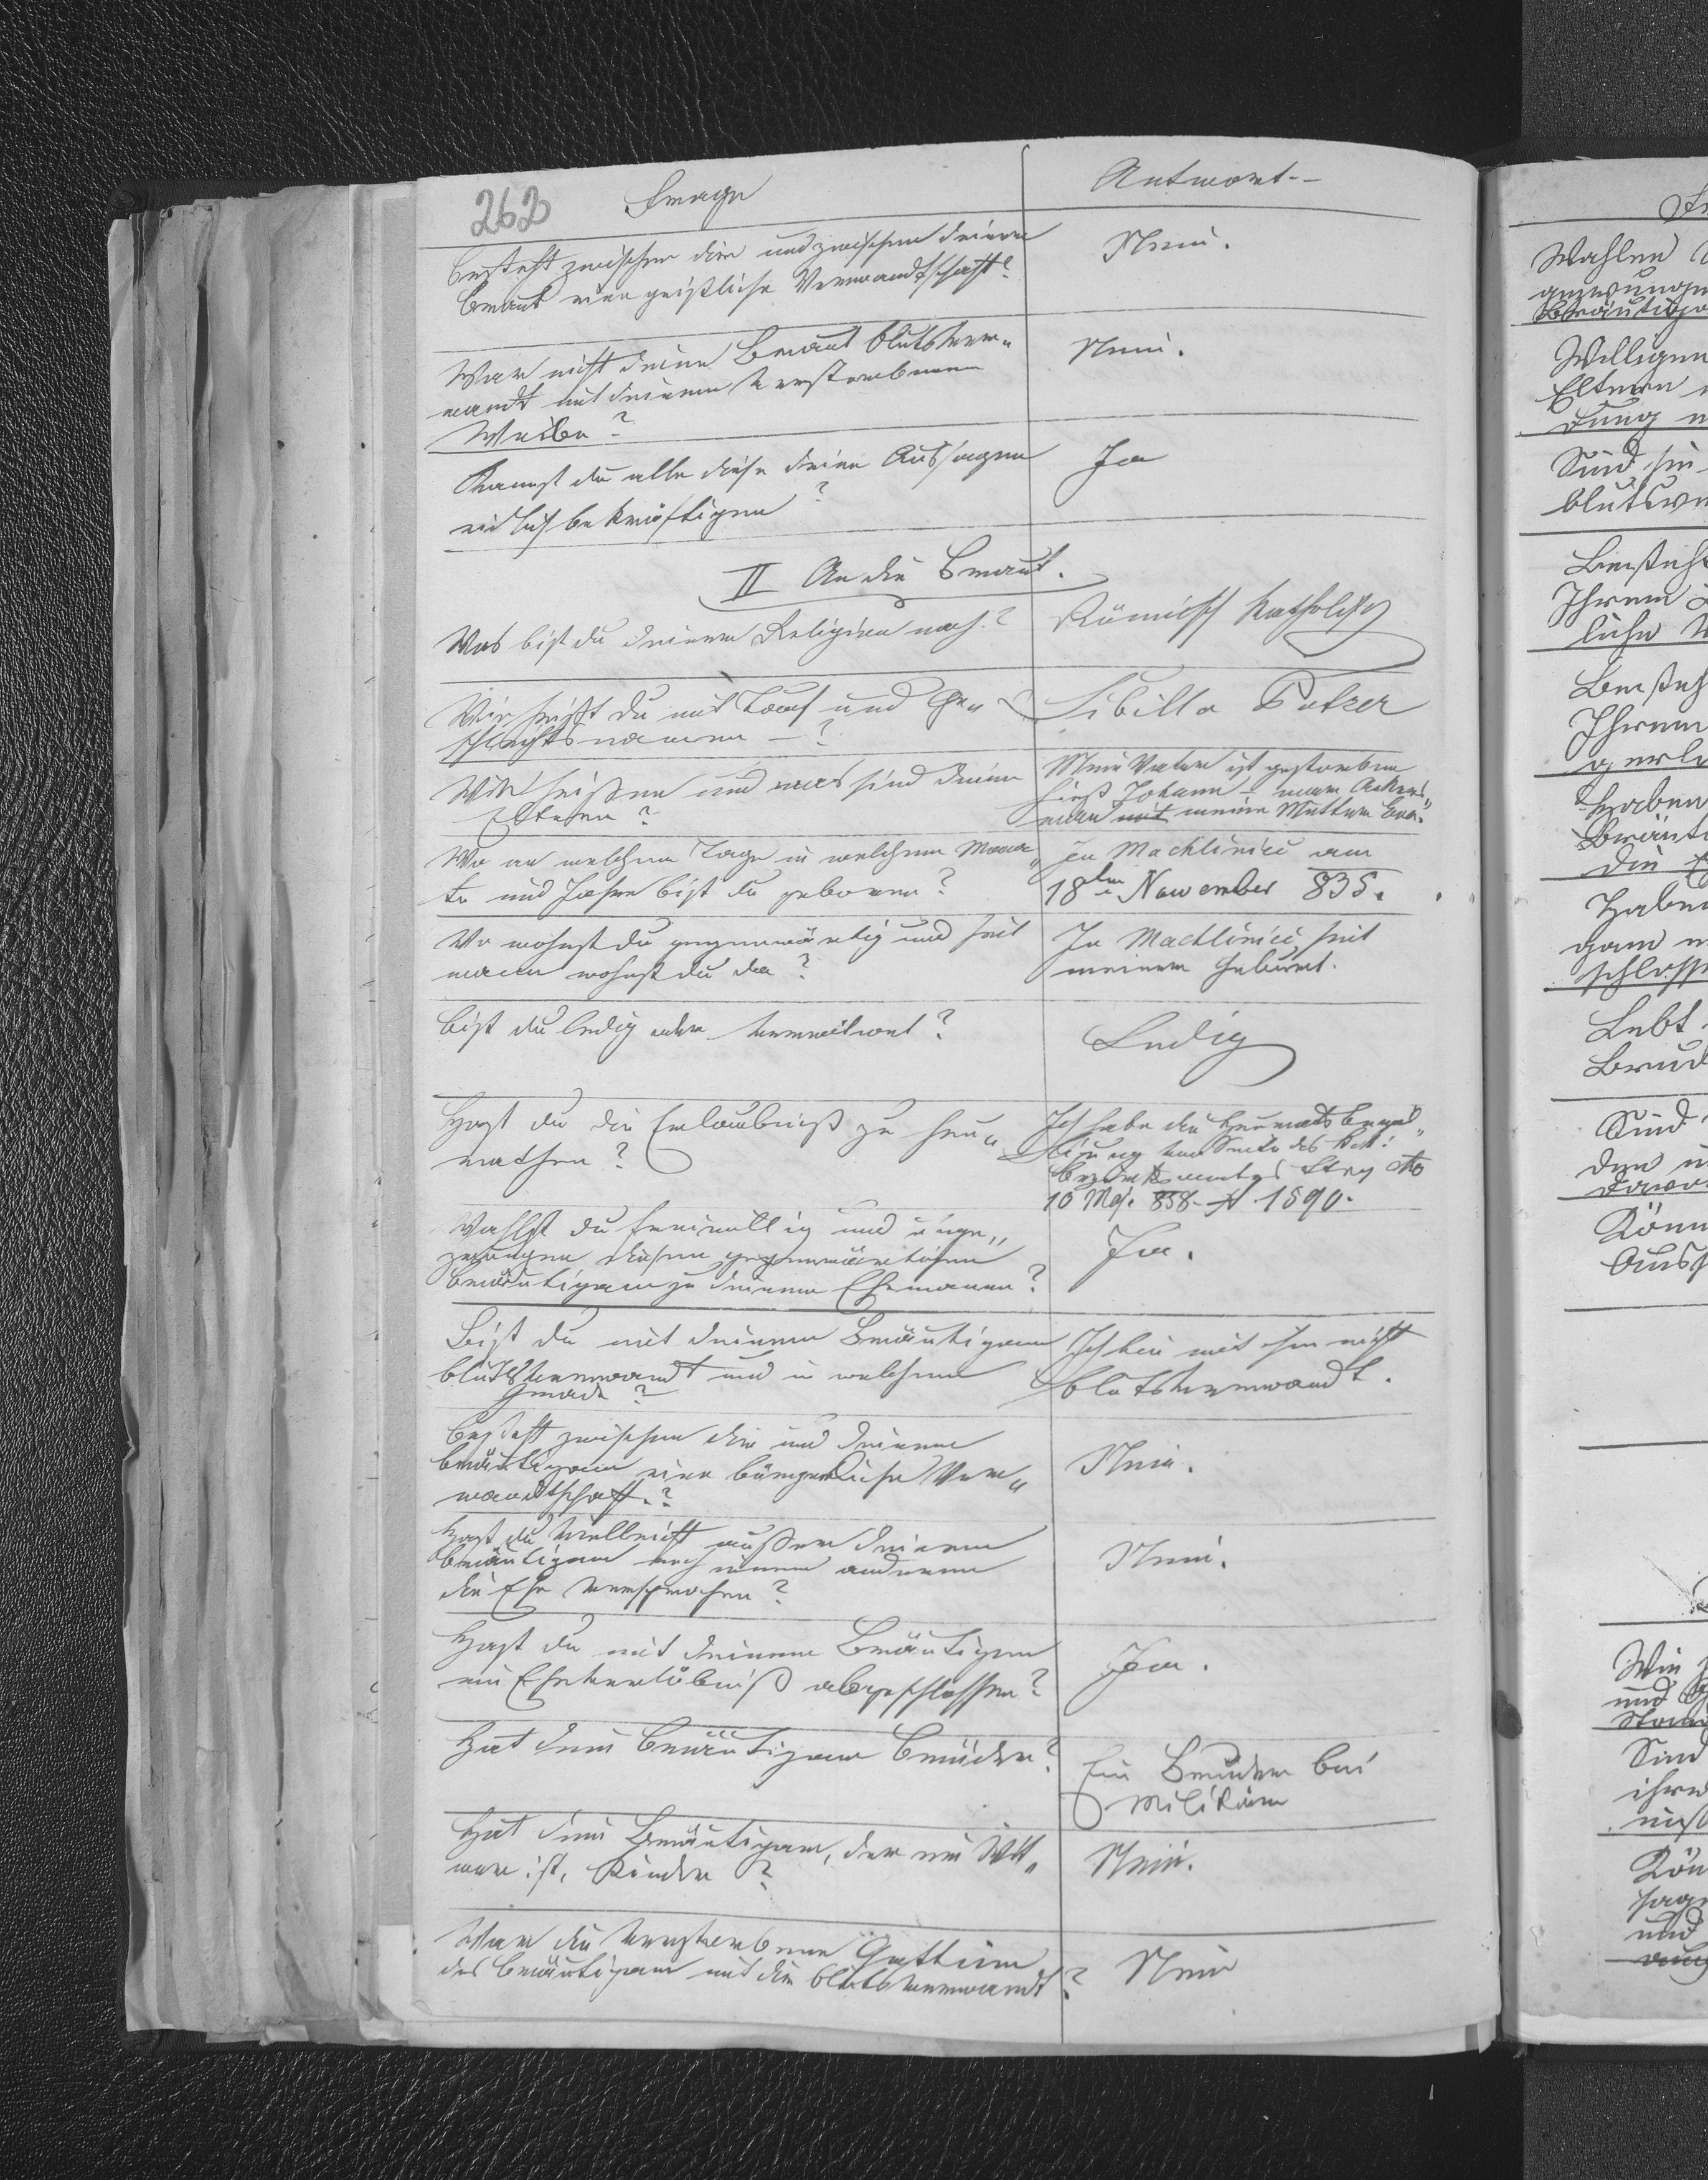 262
Frage
Antwort.-
besteht zwischen dir und zwischen deiner
Braut eine geistliche Verwandtschaft?
Nein.
War nicht deine Braut blutsver„
wandt mit deinem verstorbenen
Weibe?
Nein.
Kannst du alle diese deine Aussagen
eidlich bekräftigen?
Ja
II An die Braut.
Was bist du deiner Religion nach?
Römisch Katholisch
Wie heißt du mit Tauf und Ge„
schlechtsnamen – ?
Sibilla Patzer
Wie heißen und was sind deine
Eltern?
Mein Vater ist gestorben
hieß Johann – war Ackers„
mann mit meine Mutter Eva.
Wo an welchem Tage in welchem Mona„
te und Jahre bist du geboren?
In Machliniec am
18ten November 835.
Wo wohnst du gegenwärtig und seit
wann wohnst du da?
In Machliniec, seit
meiner Geburt.
bist du ledig oder verwitwet?
Ledig
Hast du die Erlaubniß zu heu„
rathen?
Ich habe die Heurats bewil„
ligung von Seite des
Bezirksamtes Stry dto
10 Mai 858 - N 1590.
Wahlst du freiwillig und unge„
zwungen diesen gegenwärtigen
Bräutigam zu deinem Ehemanne?
Ja.
Bist du mit deinem Bräutigam
blutsverwandt und in welchem
Grade?
Ich bin mit ihm nicht
blutsverwandt.
Besteht zwischen dir und deinem
Bräutigam eine bürgerliche Ver„
wandtschaft?
Nein.
Hast du vielleicht außer deinem
Bräutigam noch einem anderen
die Ehe versprochen?
Nein.
Hast du mit deinem Bräutigam
ein Eheverlöbniß abgeschlossen?
Ja.
Hat dein Bräutigam Brüder?
Ein Bruder bei
Militär
Hat dein Bräutigam, der ein Wit„
wer ist, Kinder?
Nein.
War die verstorbene Gattin
des Bräutigam mit dir blutsverwandt?
Nein
Wahlen
gezwungen
Bräutiga
Willigen
Eltern
dung
Sind sie
blutsve
Besteht
Ihrem
liche
Besteh
Ihrem
gerli
Haben
Bräut
die
Haben
gam
schlosse
Lebt
Brud
Sind
den
davo
Könn
Auss
Wie
und
Stand
Sind
ihre
nicht
Kön
sag
und